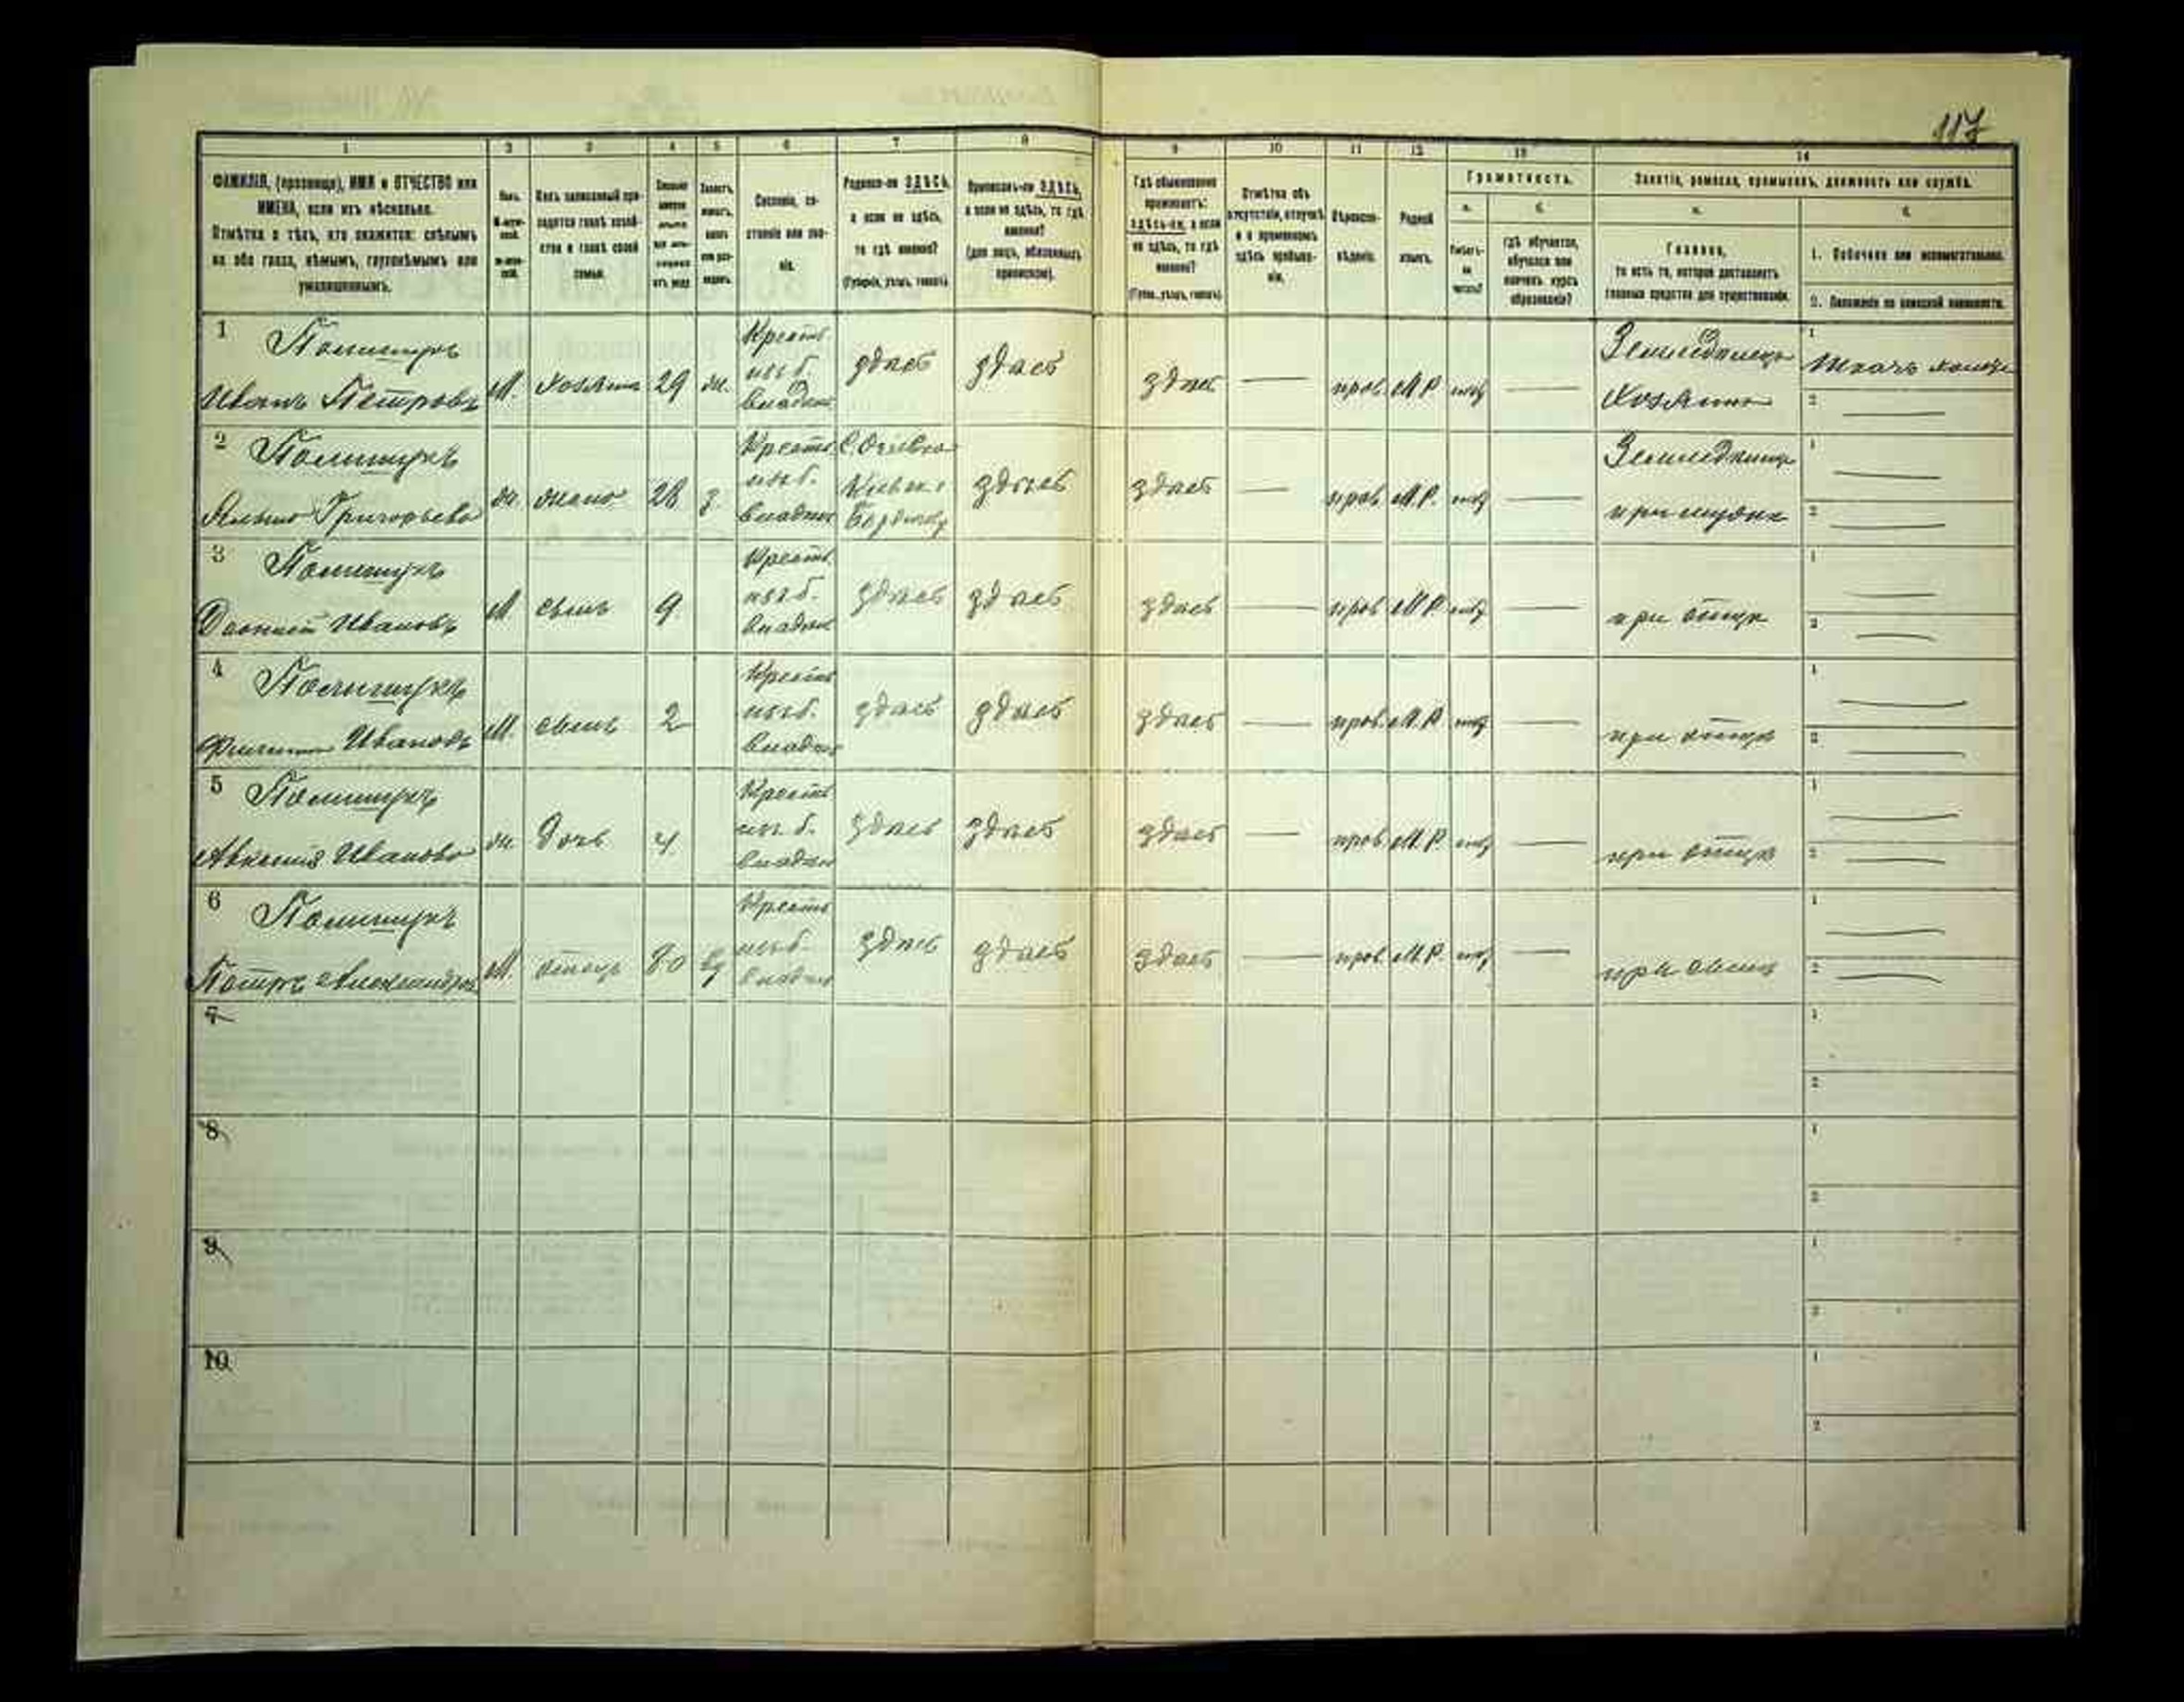 117
1 2 3 4 5 6 7 8 9 10 11 12 13 14
ФАМИЛІЯ, (прозвище), ИМЯ и ОТЧЕСТВО или
ИМЕНА, если ихъ нѣсколько.
Отмѣтка о тѣхъ, кто окажется: слѣпымъ
на оба глаза, нѣмымъ, глухонѣмымъ или
умалишеннымъ.
Полъ.
М-муж-
ской.
Ж-жен-
ской.
Какъ записанный при-
ходится главѣ хозяй-
ства и главѣ своей
семьи.
Сословіе, со-
стояніе или зва-
ніе.
Родился-ли ЗДѢСЬ,
а если не здѣсь,
то гдѣ именно?
(Губернія, уѣздъ, городъ).
Приписанъ-ли ЗДѢСЬ,
а если не здѣсь, то гдѣ
именно?
(для лицъ, обязанныхъ
припискою).
Гдѣ обыкновенно
проживаетъ:
здѣсь-ли, а если
не здѣсь, то гдѣ
именно?
(Губ., уѣздъ, городъ).
Отмѣтка объ
отсутствіи, отлучкѣ
и о временномъ
здѣсь пребыва-
ніи.
Вѣроиспо-
вѣданіе.
Родной
языкъ.
Грамотность.
а.
Умѣетъ-
ли
читать?
б.
гдѣ обучается,
обучался или
кончилъ курсъ
образованія?
Занятіе, ремесло, промыселъ, должность или служба.
а.
Главное,
то есть то, которое доставляетъ
главныя средства для существованія.
б.
1. Побочное или вспомогательное.
2. Положеніе по воинской повинности.
1 Полищукъ
Иванъ Петровъ
М. хозяинъ 29 ж.
Крестъ.
изъ б.
владѣл
здѣсь здѣсь здѣсь — прав М.Р. нѣт —
Земледѣлецъ
Хозяинъ
1 Ткачъ
2 —
2 Полищукъ
Григорьева
ж. жена 28 з.
Крестъ
изъ б.
владѣл
Кіевск.
здѣсь здѣсь — прав М.Р. нѣт —
Земледѣлец
при мужѣ
1 —
2 —
3 Полищукъ
Ивановъ
М сынъ 9
Крестъ.
изъ б.
владѣл
здѣсь здѣсь здѣсь — прав М.Р. нѣт —
при отцѣ
1 —
2 —
4 Полищукъ
Ивановъ
М. сынъ 2
Крестъ
изъ б.
владѣл
здѣсь здѣсь здѣсь — прав М.Р. нѣт —
при отцѣ
1 —
2 —
5 Полищукъ
Иванова
ж. дочь 4
Крестъ
из б.
владѣл
здѣсь здѣсь здѣсь — прав М.Р. нѣт —
при отцѣ
1 —
2 —
6 Полищукъ
Петръ Александров
М. отецъ 80 вд
Крестъ
изъ б.
владѣл
здѣсь здѣсь здѣсь — прав М.Р. нѣт —
при сынѣ
1 —
2 —
7
1
2
8
1
2
9
1
2
10
1
2